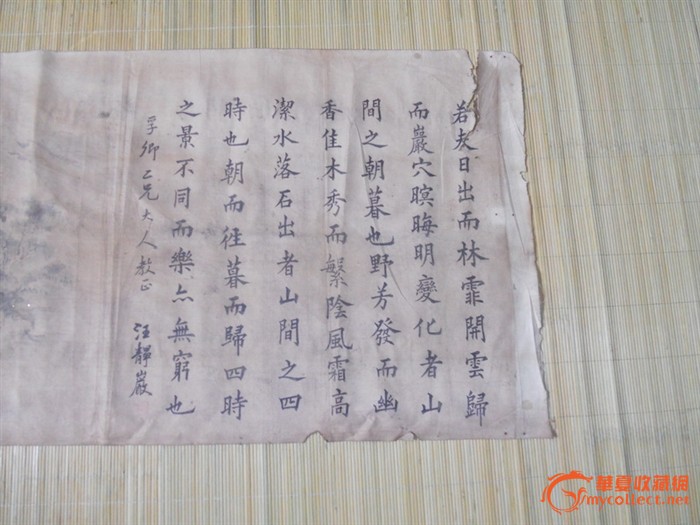 若夫日出而林霏開雲歸
而巖穴暝晦明變化者山
間之朝暮也野芳發而幽
香佳木秀而繁陰風霜高
潔水落石出者山間之四
時也朝而往暮而歸四時
之景不同而樂亦無窮也
孚卿乙兄大人教正
汪靜巖
華夏收藏網
mycollect.net